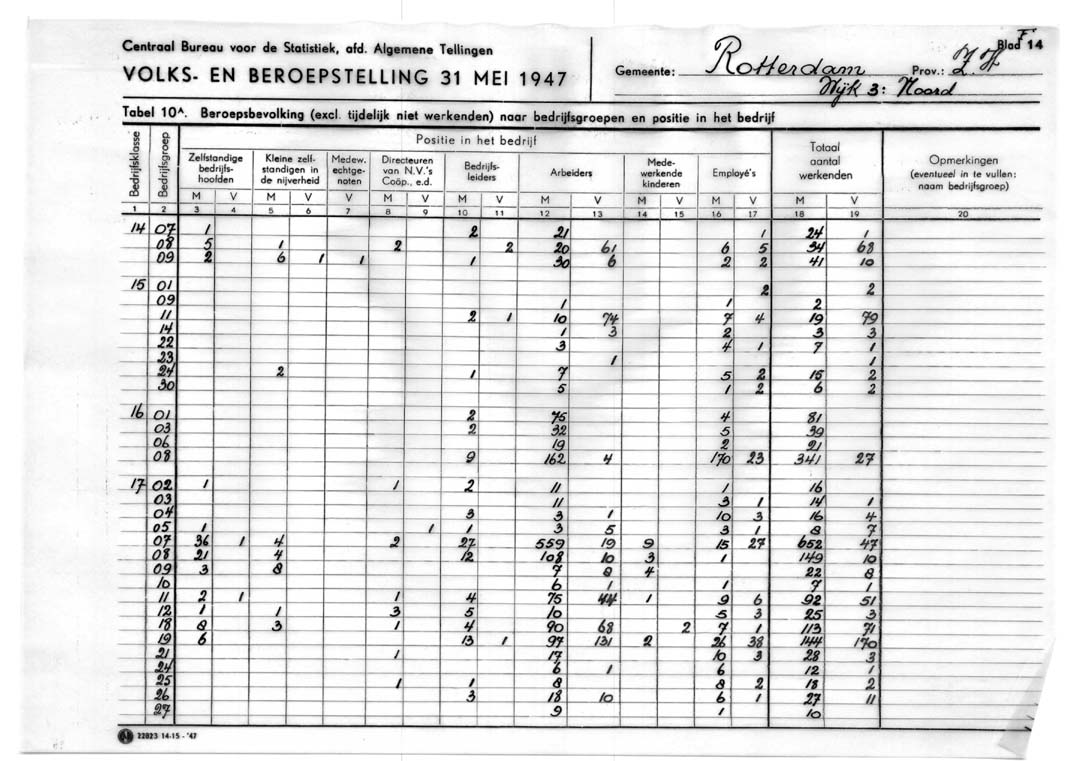 Centraal Bureau voor de Statistiek, afd. Algemene Tellingen
VOLKS- EN BEROEPSTELLING 31 MEI 1947
Gemeente: Rotterdam Prov.: Z. H. Blad F 14
Wijk 3: Noord
Tabel 10A. Beroepsbevolking (excl. tijdelijk niet werkenden) naar bedrijfsgroepen en positie in het bedrijf
Bedrijfsklasse Bedrijfsgroep Positie in het bedrijf Totaal aantal werkenden Opmerkingen (eventueel in te vullen: naam bedrijfsgroep)
Zelfstandige bedrijfshoofden Kleine zelfstandigen in de nijverheid Medew. echtgenoten Directeuren van N.V.'s Coöp., e.d. Bedrijfsleiders Arbeiders Medewerkende kinderen Employé's
M V M V V M V M V M V M V M V M V
1 2 3 4 5 6 7 8 9 10 11 12 13 14 15 16 17 18 19 20
14 07 1 2 21 1 24 1
08 5 1 2 2 20 61 6 5 34 68
09 2 6 1 1 1 30 6 2 2 41 10
15 01 2 2
09 1 1 2
11 2 1 10 74 7 4 19 79
14 1 3 2 3 3
22 3 4 1 7 1
23 1 1
24 2 1 7 5 2 15 2
30 5 1 2 6 2
16 01 2 75 4 81
03 2 32 5 39
06 19 2 21
08 9 162 4 170 23 341 27
17 02 1 1 2 11 1 16
03 11 3 1 14 1
04 3 3 1 10 3 16 4
05 1 1 1 3 5 3 1 8 7
07 36 1 4 2 27 559 19 9 15 27 652 47
08 21 4 12 108 10 3 1 149 10
09 3 8 7 8 4 22 8
10 6 1 1 7 1
11 2 1 1 4 75 44 1 9 6 92 51
12 1 1 3 5 10 5 3 25 3
18 8 3 1 4 90 68 2 7 1 113 71
19 6 13 1 97 131 2 26 38 144 170
21 1 17 10 3 28 3
24 6 1 6 12 1
25 1 1 8 8 2 18 2
26 3 18 10 6 1 27 11
27 9 1 10
22823 14-15 - '47